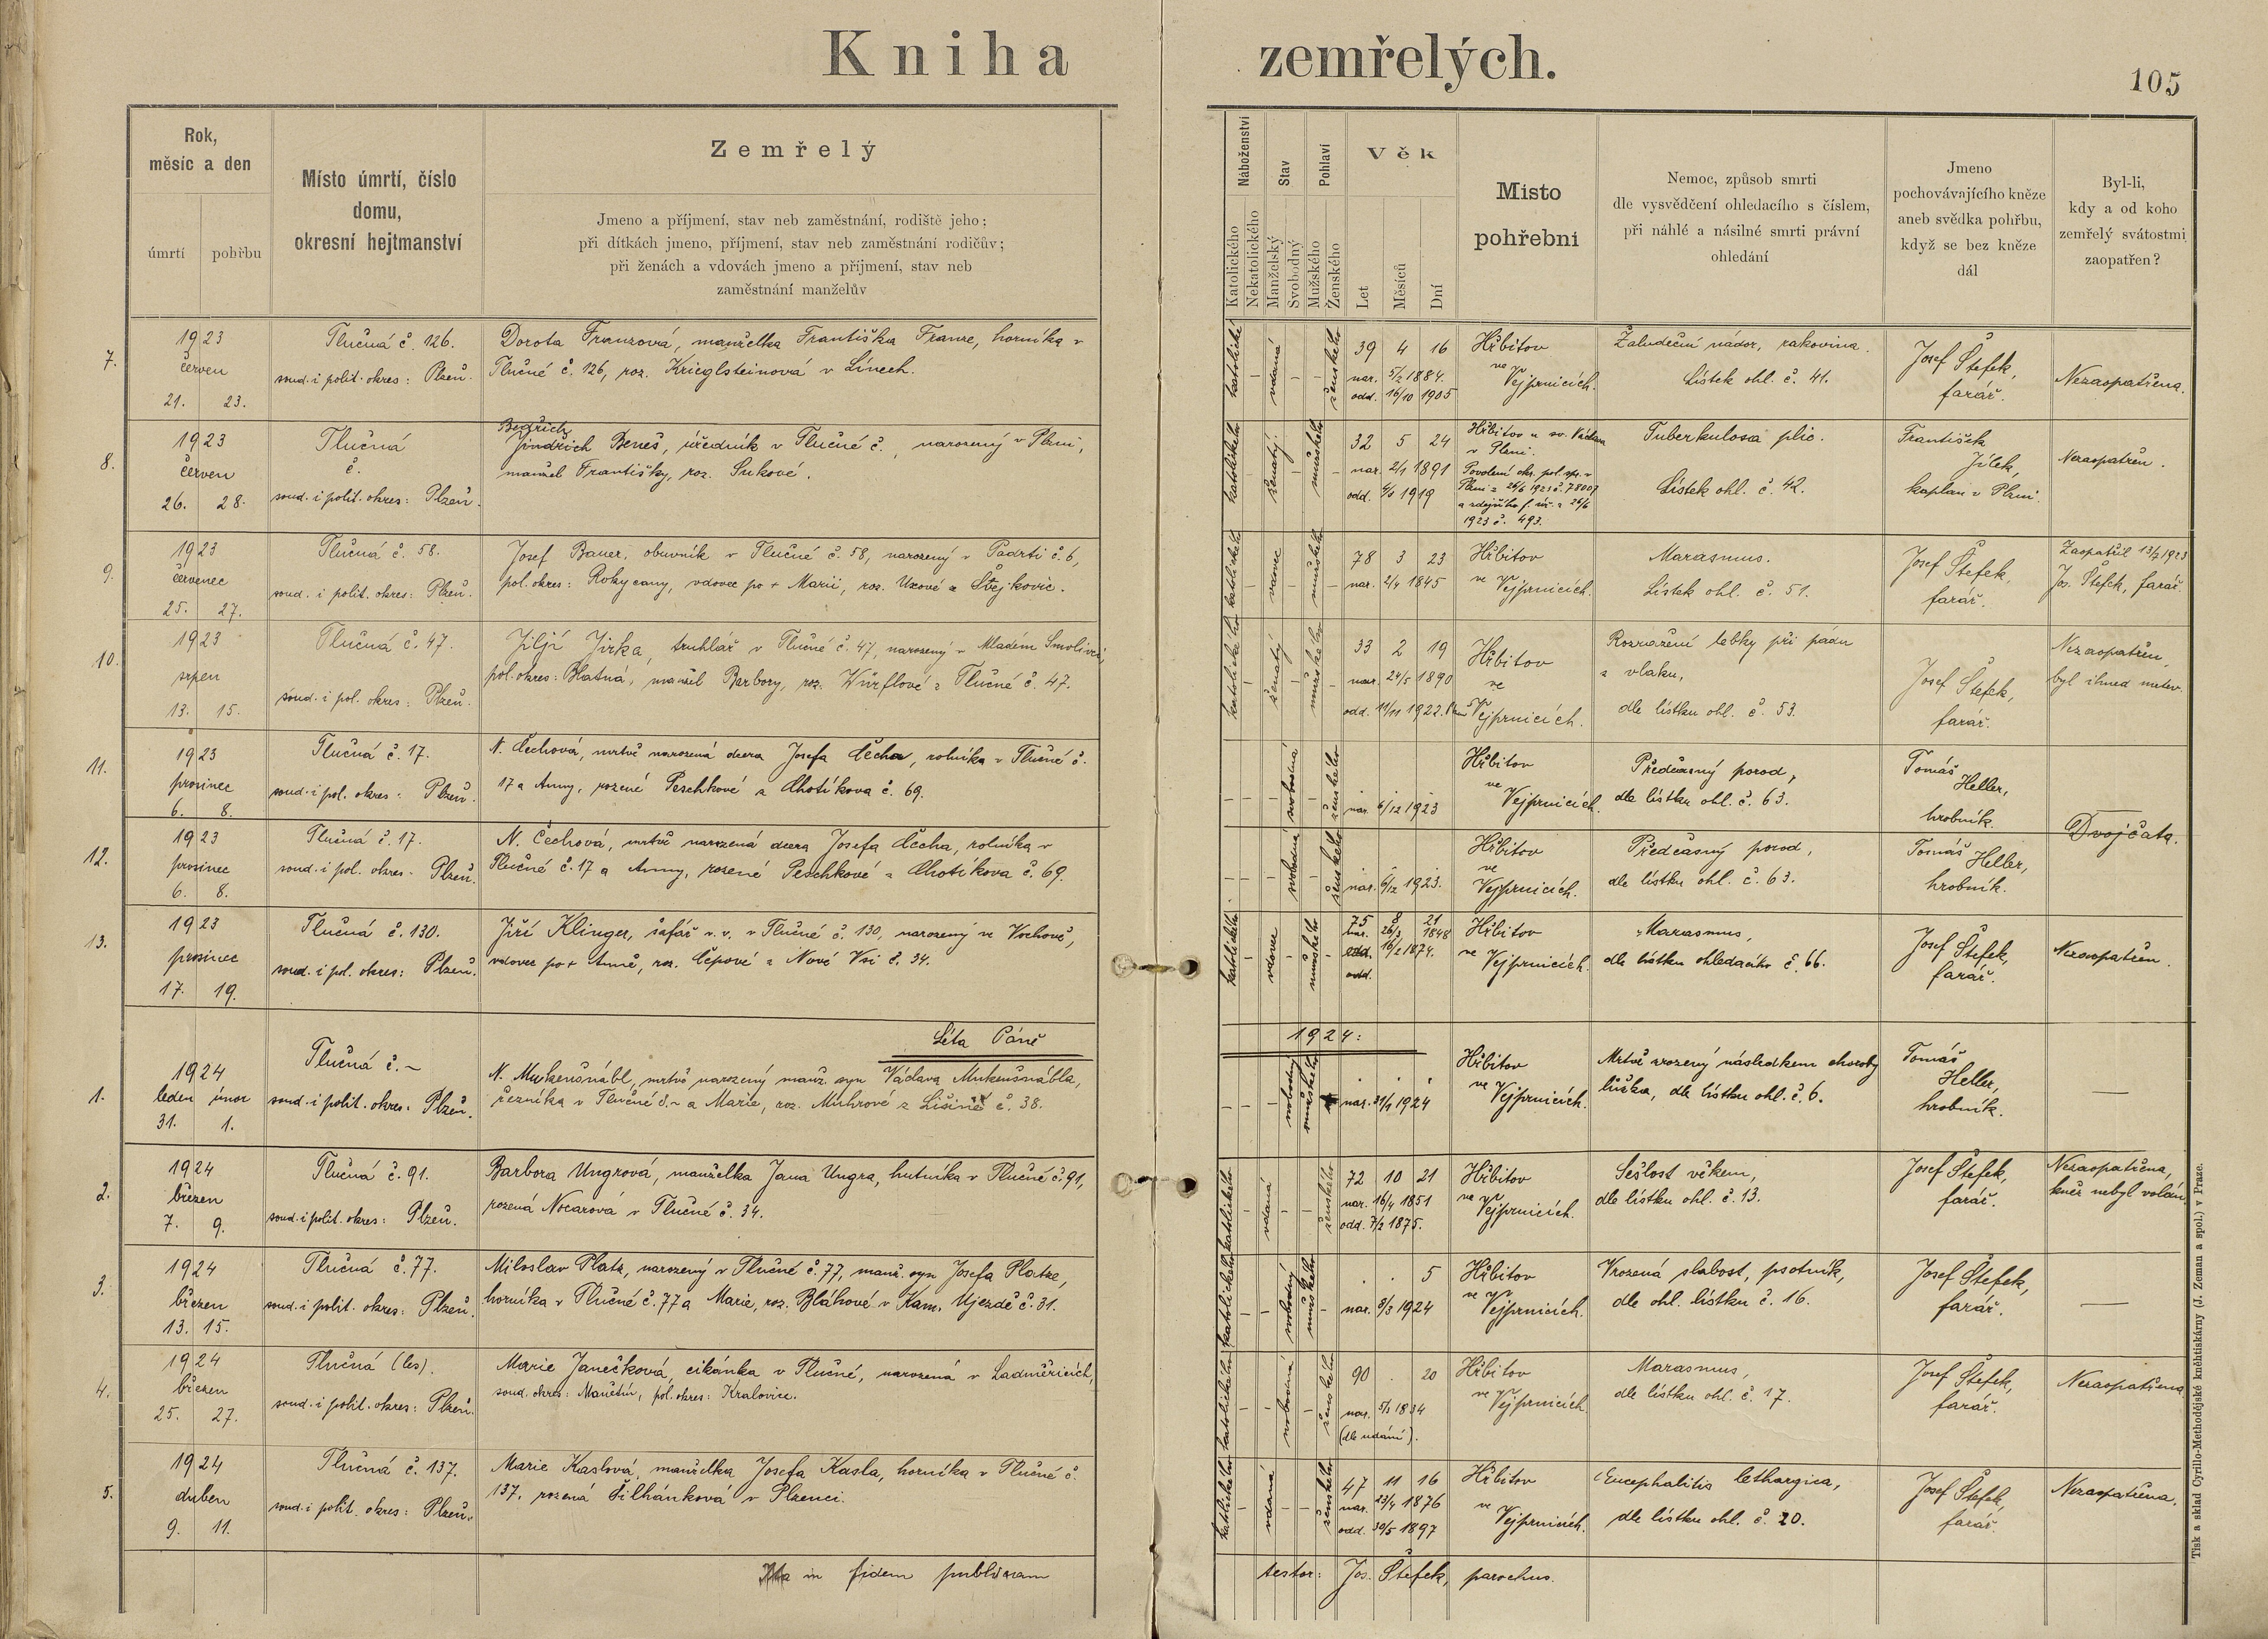 Kniha zemřelých.
105
Rok,
měsíc a den
úmrtí
pohřbu
Místo úmrtí, číslo
domu,
okresní hejtmanství
Zemřelý
Jmeno a příjmení, stav neb zaměstnání, rodiště jeho;
při dítkách jmeno, příjmení, stav neb zaměstnání rodičův;
při ženách a vdovách jmeno a příjmení, stav neb
zaměstnání manželův
Náboženství
Katolického
Nekatolického
Stav
Manželský
Svobodný
Pohlaví
Mužského
Ženského
Věk
Let
Měsíců
Dní
Místo
pohřební
Nemoc, způsob smrti
dle vysvědčení ohledacího s číslem,
při náhlé a násilné smrti právní
ohledání
Jmeno
pochovávajícího kněze
aneb svědka pohřbu,
když se bez kněze
dál
Byl-li,
kdy a od koho
zemřelý svátostmi
zaopatřen?
7.
1923
červen
21. 23.
Tlučná č. 126.
soud. i polit. okres: Plzeň.
Dorota Franzová, manželka Františka Franze, horníka v
Tlučné č. 126, roz. Krieglsteinová v Línech.
katolické
vdaná
ženského
39 4 16
nar. 5/2 1884.
odd. 16/10 1905
Hřbitov
ve
Vejprnicích.
Žaludeční nádor, rakovina.
Lístek ohl. č. 41.
Josef Štefek,
farář.
Nezaopatřena.
8.
1923
červen
26. 28.
Tlučná
č.
soud. i polit. okres: Plzeň.
Bedřich
Jindřich Beneš, úředník v Tlučné č. , narozený v Plzni,
manžel Františky, roz. Sukové.
katolického
ženatý.
mužského
32 5 24
nar. 2/1 1891
odd. 1919
Hřbitov u sv. Václava
v Plzni.
Povolení okr. pol. spr. v
Plzni z 26/6 1923 č. 78007
a zdejšího f. úř. z 26/6
1923 č. 493.
Tuberkulosa plic.
Lístek ohl. č. 42.
František
Jílek,
kaplan v Plzni
Nezaopatřen.
9.
1923
červenec
25. 27.
Tlučná č. 58.
soud. i polit. okres: Plzeň.
Josef Bauer, obuvník v Tlučné č. 58, narozený v Padrti č. 6,
pol. okres: Rokycany, vdovec po + Marii, roz. Uxové z Štejkovic.
katolického
vdovec
mužského
78 3 23
nar. 2/4 1845
Hřbitov
ve
Vejprnicích.
Marasmus.
Lístek ohl. č. 51.
Josef Štefek,
farář.
Zaopatřil 13/7 1923
Jos. Štefek, farář.
10.
1923
srpen
13. 15.
Tlučná č. 47.
soud. i pol. okres: Plzeň.
Jiljí Jirka, truhlář v Tlučné č. 47, narozený v Mladém Smolivci,
pol. okres: Blatná, manžel Barbory, roz. Würflové z Tlučné č. 47.
katolického
ženatý
mužského
33 2 19
nar. 24/5 1890
odd. 11/11 1922.
Hřbitov
ve
Vejprnicích.
Rozražení lebky při pádu
z vlaku,
dle lístku ohl. č. 53.
Josef Štefek,
farář.
Nezaopatřen,
byl ihned mrtev.
11.
1923
prosinec
6. 8.
Tlučná č. 17.
soud. i pol. okres: Plzeň.
N. Čechová, mrtvě narozená dcera Josefa Čecha, rolníka v Tlučné č.
17 a Anny, rozené Peschkové z Chotíkova č. 69.
svobodná
ženského
nar. 6/12 1923
Hřbitov
ve
Vejprnicích.
Předčasný porod,
dle lístku ohl. č. 63.
Tomáš
Heller,
hrobník.
Dvojčata.
12.
1923
prosinec
6. 8.
Tlučná č. 17.
soud. i pol. okres: Plzeň.
N. Čechová, mrtvě narozená dcera Josefa Čecha, rolníka v
Tlučné č. 17 a Anny, rozené Peschkové z Chotíkova č. 69.
svobodná
ženského
nar. 6/12 1923.
Hřbitov
ve
Vejprnicích.
Předčasný porod,
dle lístku ohl. č. 63.
Tomáš Heller,
hrobník.
13.
1923
prosinec
17. 19.
Tlučná č. 130.
soud. i pol. okres: Plzeň.
Jiří Klinger, šafář v. v. v Tlučné č. 130, narozený ve Vochově,
vdovec po + Anně, roz. Čepové z Nové Vsi č. 34.
katolického
vdovec
mužského
75 8 21
nar. 26/3 1848
odd. 16/2 1874.
odd.
Hřbitov
ve
Vejprnicích.
Marasmus,
dle lístku ohledacího č. 66.
Josef Štefek,
farář.
Nezaopatřen.
Léta Páně 1924:
1.
1924
leden únor
31. 1.
Tlučná č. ~
soud. i polit. okres: Plzeň.
N. Mukenšnábl, mrtvě narozený manž. syn Václava Mukenšnábla,
řezníka v Tlučné č. ~ a Marie, roz. Muhrové z Lišině č. 38.
svobodný
mužského
nar. 31/1 1924
Hřbitov
ve
Vejprnicích.
Mrtvě zrozený následkem choroby
lůžka, dle lístku ohl. č. 6.
Tomáš
Heller,
hrobník.
—
2.
1924
březen
7. 9.
Tlučná č. 91.
soud. i polit. okres: Plzeň.
Barbora Ungrová, manželka Jana Ungra, hutníka v Tlučné č. 91,
rozená Nocarová v Tlučné č. 34.
katolického
vdaná
ženského
72 10 21
nar. 16/4 1851
odd. 7/2 1875.
Hřbitov
ve
Vejprnicích.
Sešlost věkem,
dle lístku ohl. č. 13.
Josef Štefek,
farář.
Nezaopatřena,
kněz nebyl volán.
3.
1924
březen
13. 15.
Tlučná č. 77.
soud. i polit. okres: Plzeň.
Miloslav Platz, narozený v Tlučné č. 77, manž. syn Josefa Platze,
horníka v Tlučné č. 77 a Marie, roz. Bláhové v Kam. Ujezdě č. 31.
katolického
svobodný
mužského
. . 5
nar. 8/3 1924
Hřbitov
ve
Vejprnicích.
Vrozená slabost, psotník,
dle ohl. lístku č. 16.
Josef Štefek,
farář.
—
4.
1924
březen
25. 27.
Tlučná (les).
soud. i polit. okres: Plzeň.
Marie Janečková, cikánka v Tlučné, narozená v Ladměřicích,
soud. okres: Manětín, pol. okres: Kralovice.
katolického
svobodná
ženského
90 . 20
nar. 5/3 1834
(dle udání).
Hřbitov
ve
Vejprnicích
Marasmus,
dle lístku ohl. č. 17.
Josef Štefek,
farář.
Nezaopatřena
5.
1924
duben
9. 11.
Tlučná č. 137.
soud. i polit. okres: Plzeň.
Marie Kaslová, manželka Josefa Kasla, horníka v Tlučné č.
137, rozená Šilhánková v Plzenci.
katolického
vdaná
ženského
47 11 16
nar. 23/4 1876
odd. 30/5 1897
Hřbitov
ve
Vejprnicích.
Encephalitis lethargica,
dle lístku ohl. č. 20.
Josef Štefek,
farář.
Nezaopatřena.
Ita in fidem publicam testor: Jos. Štefek, parochus.
Tisk a sklad Cyrillo-Methodějské knihtiskárny (J. Zeman a spol.) v Praze.